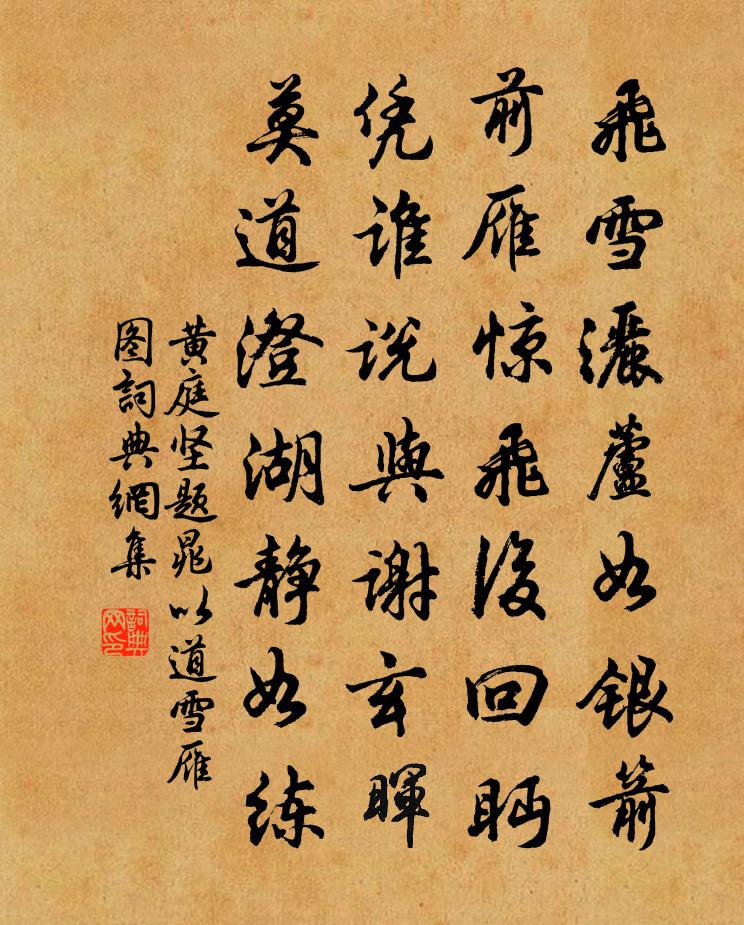 飛雪灑蘆如銀箭
前雁惊飛後回眄
凭谁説與謝玄暉
莫道澄湖静如练
黄庭坚题晁以道雪雁
图詞典網集
詞典网印